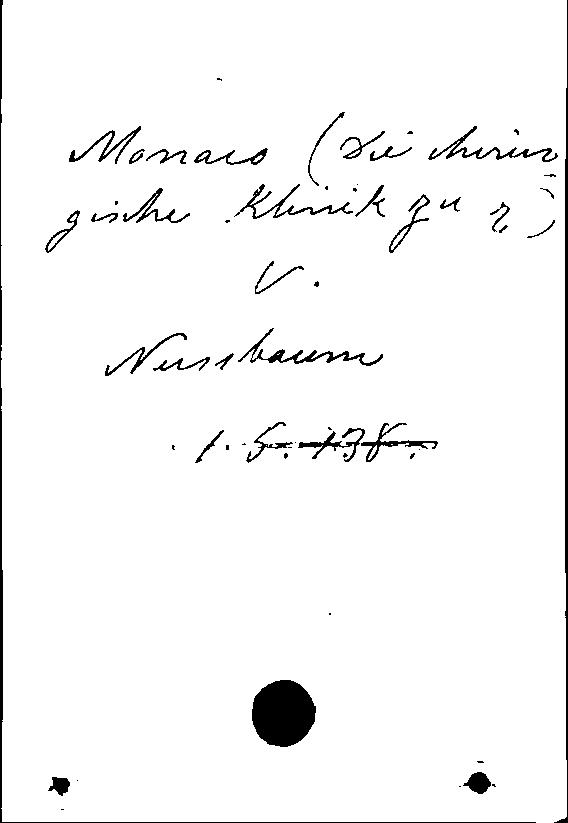 Monaco (Die chirur
gische Klinik zu
V.
Nussbaum
1. 5. 138.